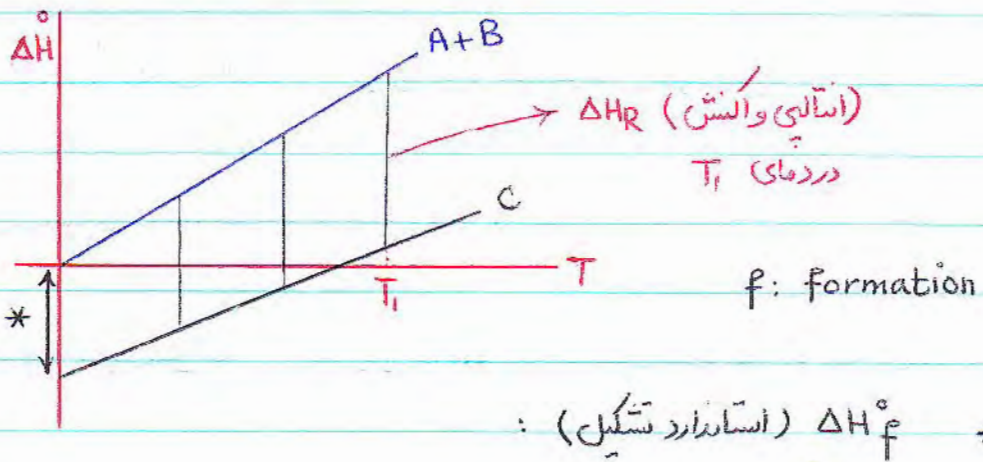 ΔH°
A+B
ΔH_R (انتالپی واکنش)
در دمای T₁
C
T
T₁
f: formation
*
ΔH°f (استاندارد تشکیل) :